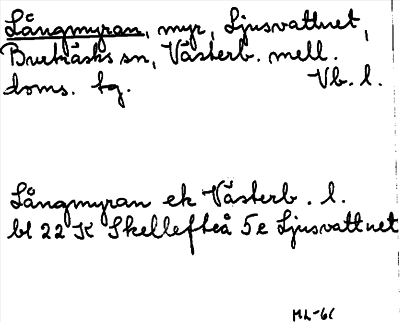 Långmyran, myr, Ljusvattnet,
Burträsks sn, Västerb. mell.
doms. tg. Vb. l.
Långmyran ek Västerb. l.
bl 22 K Skellefteå 5e Ljusvattnet
ML-61